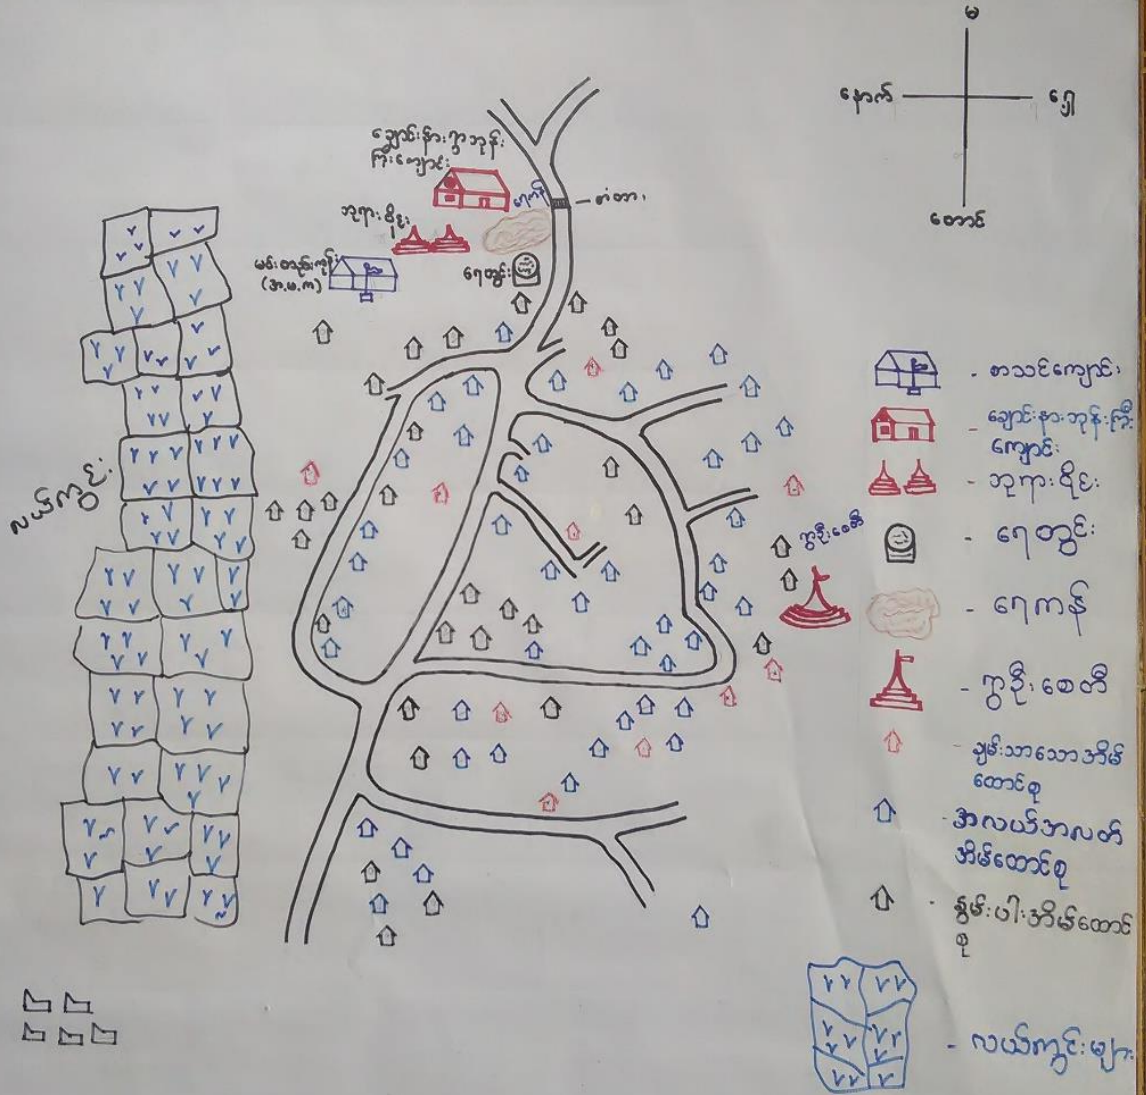 မ
နောက်
ရှေ့
တောင်
ချောင်းနားရွာဘုန်း
ကြီးကျောင်း
ရေကန်
တံတား
ဘုရားစိုင်း
ရေတွင်း
(အ.မ.က)
လယ်ကွင်း
ရွာဦးစေတီ
- စာသင်ကျောင်း
- ချောင်းနားဘုန်းကြီး
ကျောင်း
- ဘုရားစိုင်း
- ရေတွင်း
- ရေကန်
- ရွာဦးစေတီ
- ချမ်းသာသောအိမ်
ထောင်စု
- အလယ်အလတ်
အိမ်ထောင်စု
- နွမ်းပါးအိမ်ထောင်
စု
- လယ်ကွင်းများ